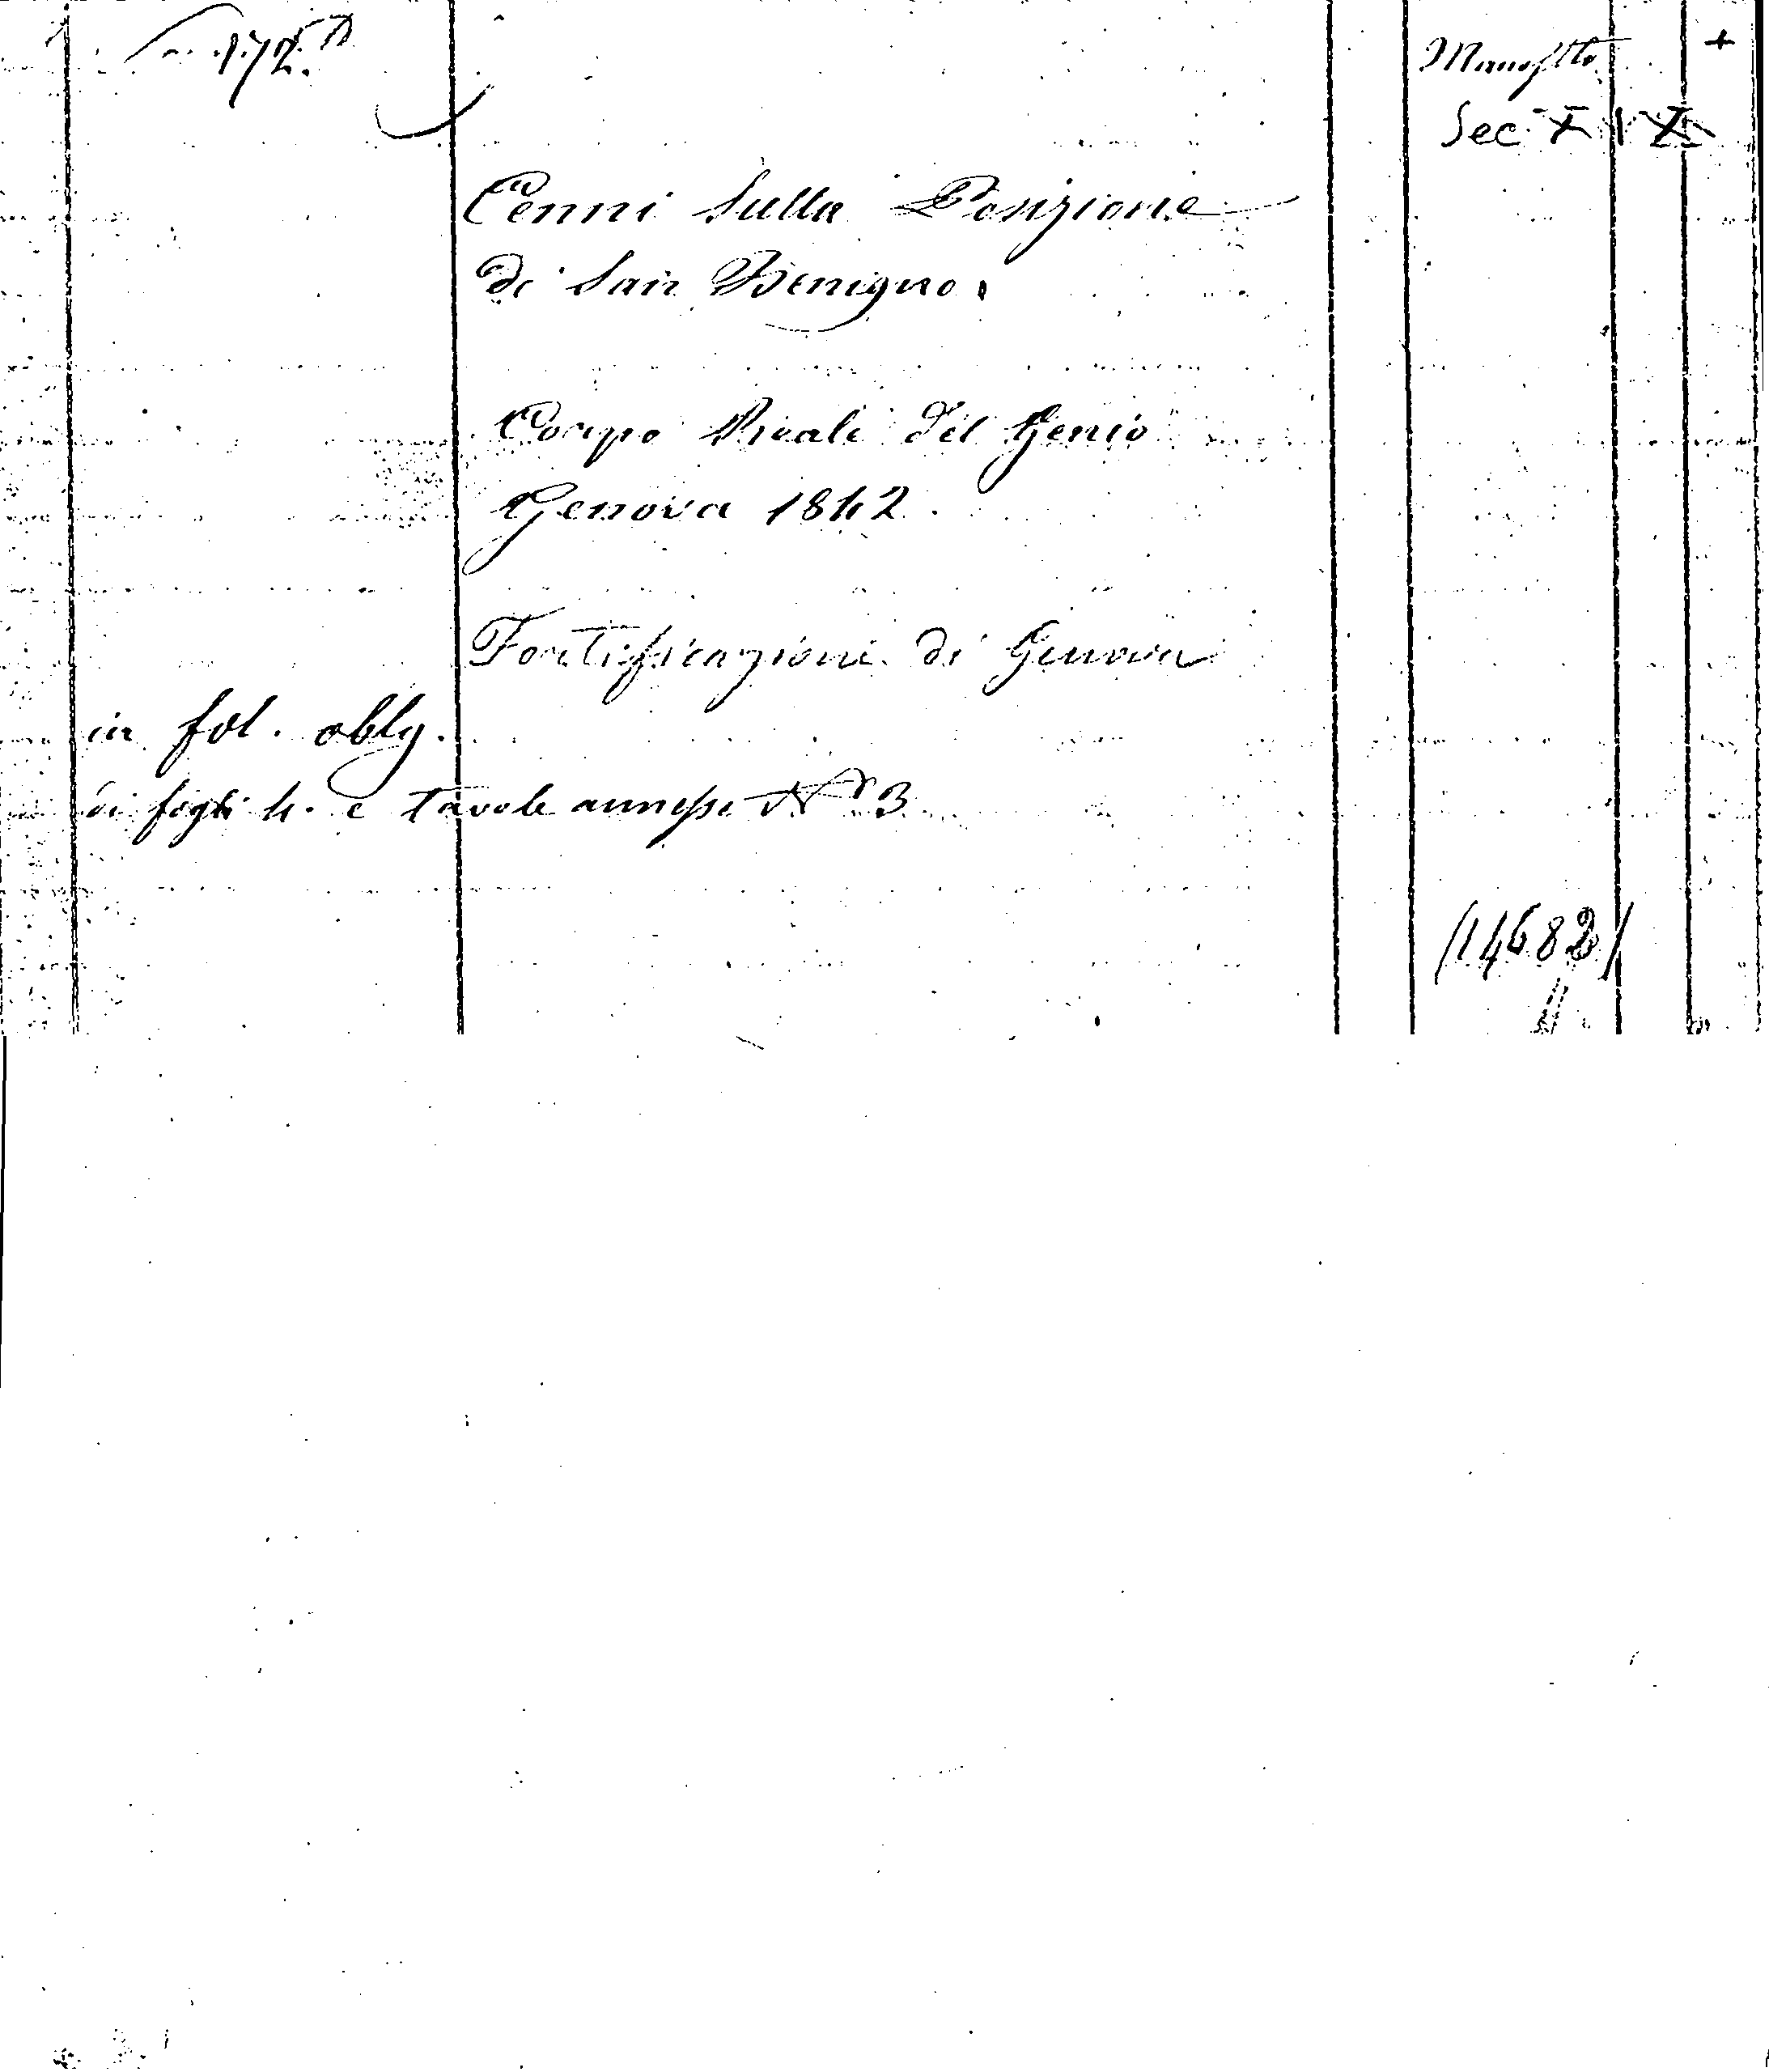 172. Manosstto +
Sec XIX
Cenni sulla Posizione
di San Benigno.
Corpo Reale del Genio
Genova 1842.
Fortificazioni di Genova
in fol. oblg.
di fogli 4. e tavole annesse N° 3
/14682/